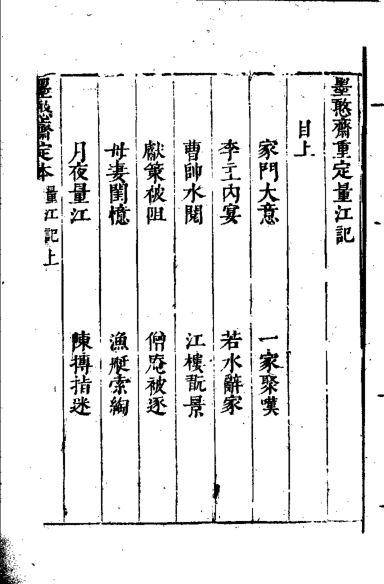 墨憨齋重定量江記
目上
家門大意 一家聚嘆
李主內宴 若水辭家
曹帥水閱 江樓翫景
獻策被阻 僧庵被逐
母妻閨憶 漁艇索綯
月夜量江 陳摶指迷
墨憨齋定本 量江記上